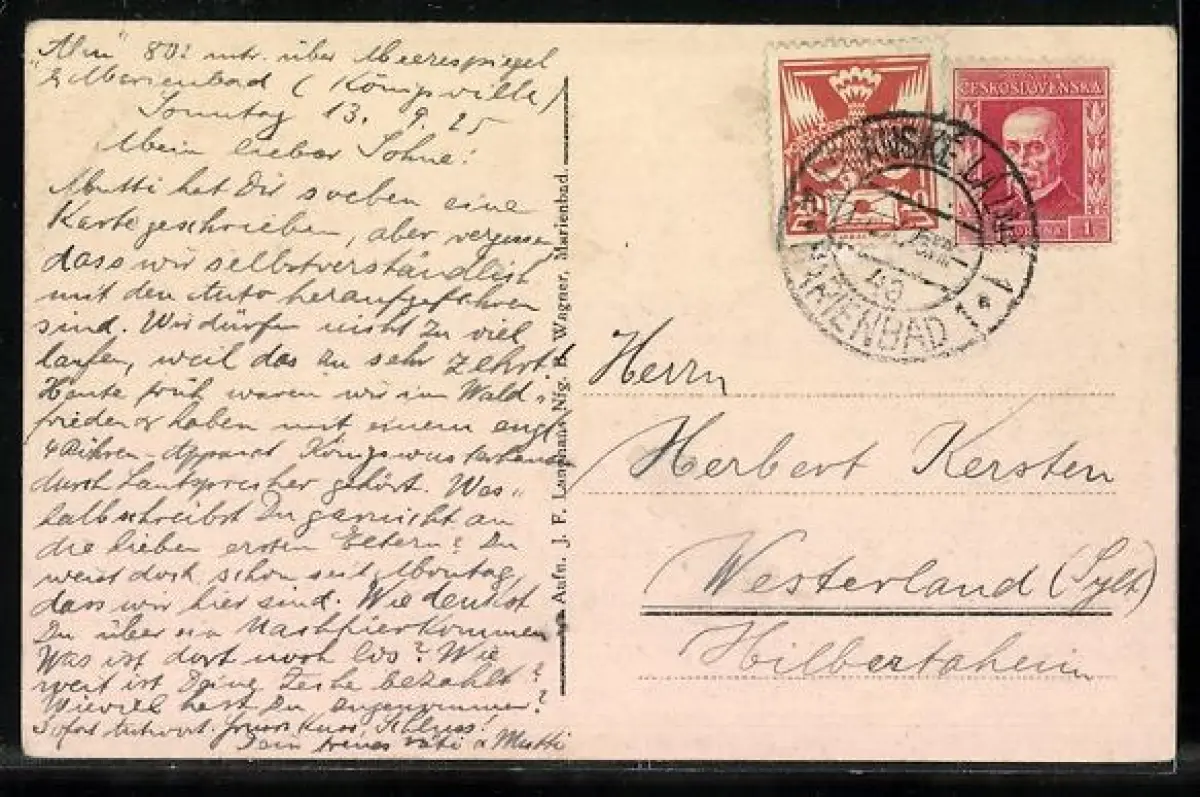 "Alm" 80? mtr. über Meerespiegel
b/ Marienbad (Königsvilla)
Sonntag 13. 9. 25
Mein lieber Sohne!
Mutti hat Dir soeben eine
Karte geschrieben, aber vergessen
dass wir selbstverständlich
mit dem Auto heraufgefahren
sind. Wir dürfen nicht zu viel
laufen, weil das zu sehr zehrt.
Heute früh waren wir im Wald
frieden & haben mit einem engl.
4 Röhren-Apparat Königswusterhausen
durch Lautsprecher gehört. Wes-
halb schreibst Du garnicht an
die lieben ersten Eltern? Du
weist doch schon seit Montag,
dass wir hier sind. Wie denkst
Du über ein Nachhier kommen
Was ist dort noch los? Wie
weit ist Deine Zeche bezahlt?
Wieviel hast Du angenommen?
Sofort Antwort. Kuss, Schluss!
Dein treues Vati u Mutti
Aufn. J. F. Langhans Nfg. H. Wagner, Marienbad.
ČESKOSLOVENSKÁ
KORUNA 1
MARIÁNSKÉ LÁZNĚ 1
MARIENBAD 1
Herrn
Herbert Kersten
Westerland (Sylt)
Hilbertsheim